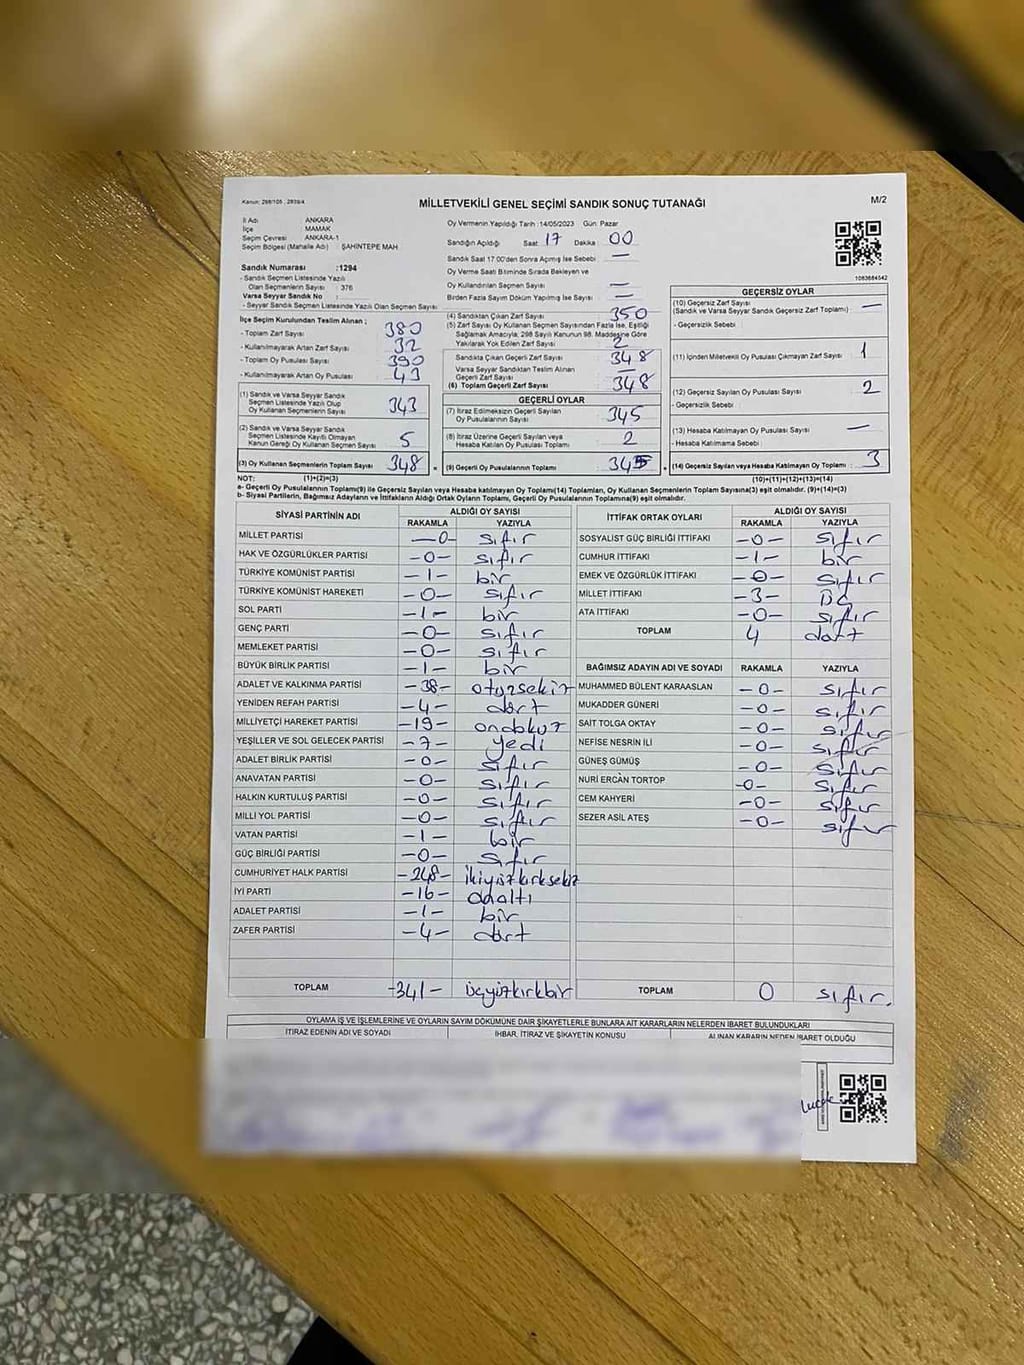 Kanun: 298/105 , 2839/4
MİLLETVEKİLİ GENEL SEÇİMİ SANDIK SONUÇ TUTANAĞI
M/2
İl Adı ANKARA
İlçe MAMAK
Seçim Çevresi ANKARA-1
Seçim Bölgesi (Mahalle Adı) : ŞAHİNTEPE MAH
Sandık Numarası :1294
- Sandık Seçmen Listesinde Yazılı
Olan Seçmenlerin Sayısı : 376
Varsa Seyyar Sandık No :
- Seyyar Sandık Seçmen Listesinde Yazılı Olan Seçmen Sayısı
Oy Vermenin Yapıldığı Tarih :14/05/2023 Gün: Pazar
Sandığın Açıldığı Saat 17 Dakika 00
Sandık Saat 17.00'den Sonra Açılmış İse Sebebi : —
Oy Verme Saati Bitiminde Sırada Bekleyen ve
Oy Kullandırılan Seçmen Sayısı —
Birden Fazla Sayım Döküm Yapılmış İse Sayısı —
1083684542
İlçe Seçim Kurulundan Teslim Alınan ;
- Toplam Zarf Sayısı 380
- Kullanılmayarak Artan Zarf Sayısı 32
- Toplam Oy Pusulası Sayısı 390
- Kullanılmayarak Artan Oy Pusulası 43
(1) Sandık ve Varsa Seyyar Sandık
Seçmen Listesinde Yazılı Olup
Oy Kullanan Seçmenlerin Sayısı 343
(2) Sandık ve Varsa Seyyar Sandık
Seçmen Listesinde Kayıtlı Olmayan
Kanun Gereği Oy Kullanan Seçmen Sayısı 5
(3) Oy Kullanan Seçmenlerin Toplam Sayısı 348
(1)+(2)=(3)
(4) Sandıktan Çıkan Zarf Sayısı 350
(5) Zarf Sayısı Oy Kullanan Seçmen Sayısından Fazla İse, Eşitliği
Sağlamak Amacıyla; 298 Sayılı Kanunun 98. Maddesine Göre
Yakılarak Yok Edilen Zarf Sayısı 2
Sandıkta Çıkan Geçerli Zarf Sayısı 348
Varsa Seyyar Sandıktan Teslim Alınan
Geçerli Zarf Sayısı —
(6) Toplam Geçerli Zarf Sayısı 348
GEÇERLİ OYLAR
(7) İtiraz Edilmeksizin Geçerli Sayılan
Oy Pusulalarının Sayısı 345
(8) İtiraz Üzerine Geçerli Sayılan veya
Hesaba Katılan Oy Pusulası Toplamı 2
(9) Geçerli Oy Pusulalarının Toplamı 345
GEÇERSİZ OYLAR
(10) Geçersiz Zarf Sayısı
(Sandık ve Varsa Seyyar Sandık Geçersiz Zarf Toplamı) : —
- Geçersizlik Sebebi :
(11) İçinden Milletvekili Oy Pusulası Çıkmayan Zarf Sayısı : 1
(12) Geçersiz Sayılan Oy Pusulası Sayısı : 2
- Geçersizlik Sebebi :
(13) Hesaba Katılmayan Oy Pusulası Sayısı : —
- Hesaba Katılmama Sebebi :
(14) Geçersiz Sayılan veya Hesaba Katılmayan Oy Toplamı : 3
(10)+(11)+(12)+(13)=(14)
NOT:
a- Geçerli Oy Pusulalarının Toplamı(9) ile Geçersiz Sayılan veya Hesaba katılmayan Oy Toplamı(14) Toplamları, Oy Kullanan Seçmenlerin Toplam Sayısına(3) eşit olmalıdır. (9)+(14)=(3)
b- Siyasi Partilerin, Bağımsız Adayların ve İttifakların Aldığı Ortak Oyların Toplamı, Geçerli Oy Pusulalarının Toplamına(9) eşit olmalıdır.
SİYASİ PARTİNİN ADI ALDIĞI OY SAYISI
RAKAMLA YAZIYLA
MİLLET PARTİSİ —0— sıfır
HAK VE ÖZGÜRLÜKLER PARTİSİ —0— sıfır
TÜRKİYE KOMÜNİST PARTİSİ —1— bir
TÜRKİYE KOMÜNİST HAREKETİ —0— sıfır
SOL PARTİ —1— bir
GENÇ PARTİ —0— sıfır
MEMLEKET PARTİSİ —0— sıfır
BÜYÜK BİRLİK PARTİSİ —1— bir
ADALET VE KALKINMA PARTİSİ —38— otuzsekiz
YENİDEN REFAH PARTİSİ —4— dört
MİLLİYETÇİ HAREKET PARTİSİ —19— ondokuz
YEŞİLLER VE SOL GELECEK PARTİSİ —7— yedi
ADALET BİRLİK PARTİSİ —0— sıfır
ANAVATAN PARTİSİ —0— sıfır
HALKIN KURTULUŞ PARTİSİ —0— sıfır
MİLLİ YOL PARTİSİ —0— sıfır
VATAN PARTİSİ —1— bir
GÜÇ BİRLİĞİ PARTİSİ —0— sıfır
CUMHURİYET HALK PARTİSİ —248— ikiyüzkırksekiz
İYİ PARTİ —16— onaltı
ADALET PARTİSİ —1— bir
ZAFER PARTİSİ —4— dört
TOPLAM —341— üçyüzkırkbir
İTTİFAK ORTAK OYLARI ALDIĞI OY SAYISI
RAKAMLA YAZIYLA
SOSYALİST GÜÇ BİRLİĞİ İTTİFAKI —0— sıfır
CUMHUR İTTİFAKI —1— bir
EMEK VE ÖZGÜRLÜK İTTİFAKI —0— sıfır
MİLLET İTTİFAKI —3— üç
ATA İTTİFAKI —0— sıfır
TOPLAM 4 dört
BAĞIMSIZ ADAYIN ADI VE SOYADI RAKAMLA YAZIYLA
MUHAMMED BÜLENT KARAASLAN —0— sıfır
MUKADDER GÜNERİ —0— sıfır
SAİT TOLGA OKTAY —0— sıfır
NEFİSE NESRİN İLİ —0— sıfır
GÜNEŞ GÜMÜŞ —0— sıfır
NURİ ERCAN TORTOP —0— sıfır
CEM KAHYERİ —0— sıfır
SEZER ASİL ATEŞ —0— sıfır
TOPLAM 0 sıfır.
OYLAMA İŞ VE İŞLEMLERİNE VE OYLARIN SAYIM DÖKÜMÜNE DAİR ŞİKAYETLERLE BUNLARA AİT KARARLARIN NELERDEN İBARET BULUNDUKLARI
İTİRAZ EDENİN ADI VE SOYADI İHBAR, İTİRAZ VE ŞİKAYETİN KONUSU ALINAN KARARIN NEDEN İBARET OLDUĞU